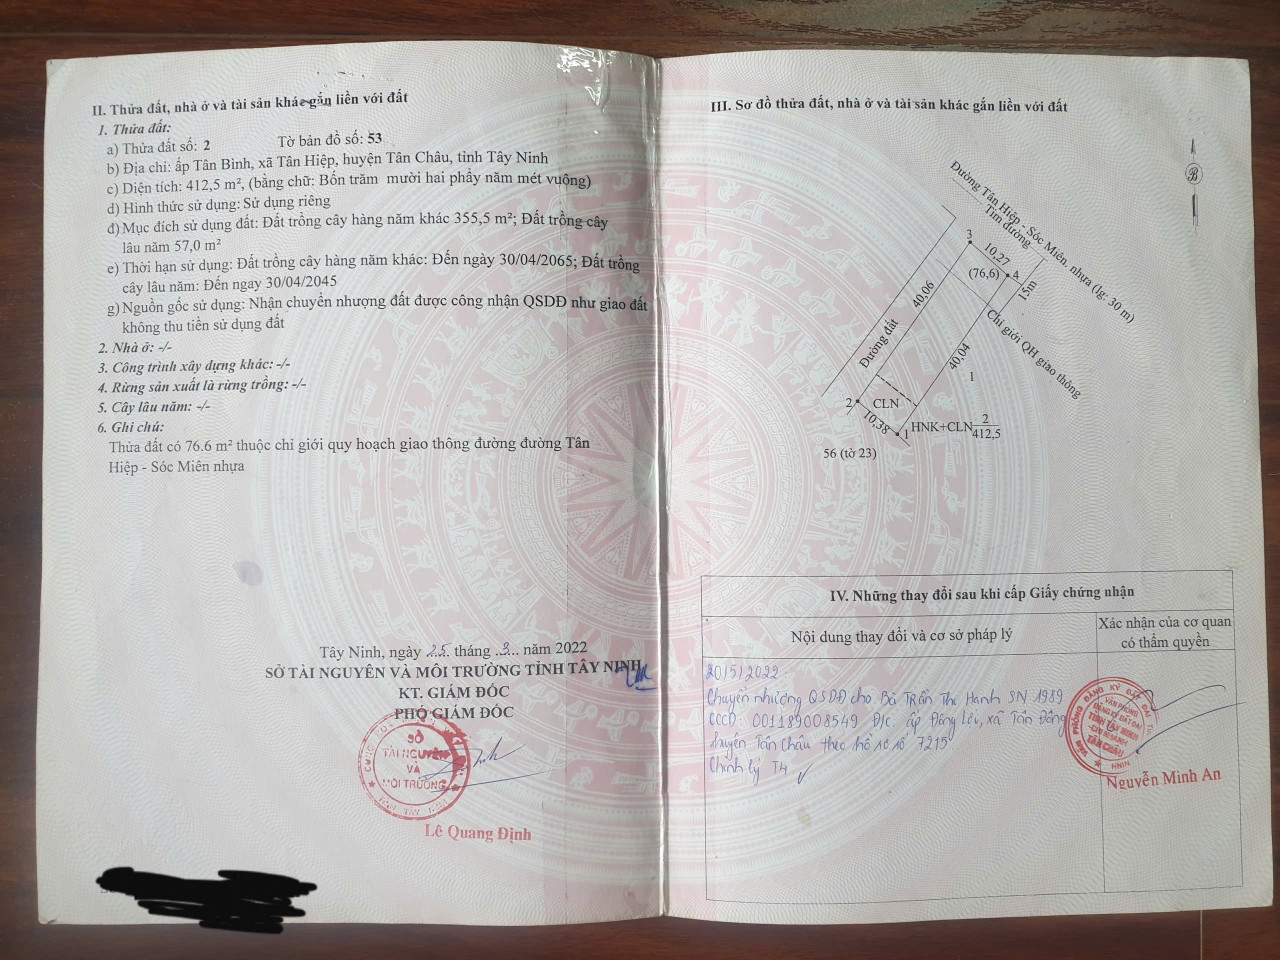 II. Thửa đất, nhà ở và tài sản khác gắn liền với đất
1. Thửa đất:
a) Thửa đất số: 2 Tờ bản đồ số: 53
b) Địa chỉ: ấp Tân Bình, xã Tân Hiệp, huyện Tân Châu, tỉnh Tây Ninh
c) Diện tích: 412,5 m², (bằng chữ: Bốn trăm mười hai phẩy năm mét vuông)
d) Hình thức sử dụng: Sử dụng riêng
đ) Mục đích sử dụng đất: Đất trồng cây hàng năm khác 355,5 m²; Đất trồng cây
lâu năm 57,0 m²
e) Thời hạn sử dụng: Đất trồng cây hàng năm khác: Đến ngày 30/04/2065; Đất trồng
cây lâu năm: Đến ngay 30/04/2045
g) Nguồn gốc sử dụng: Nhận chuyển nhượng đất được công nhận QSDĐ như giao đất
không thu tiền sử dụng đất
2. Nhà ở: -/-
3. Công trình xây dựng khác: -/-
4. Rừng sản xuất là rừng trồng: -/-
5. Cây lâu năm: -/-
6. Ghi chú:
Thửa đất có 76.6 m² thuộc chỉ giới quy hoạch giao thông đường đường Tân
Hiệp - Sóc Miên nhựa
Tây Ninh, ngày 25 tháng 3 năm 2022
SỞ TÀI NGUYÊN VÀ MÔI TRƯỜNG TỈNH TÂY NINH
KT. GIÁM ĐỐC
PHÓ GIÁM ĐỐC
SỞ
TÀI NGUYÊN
VÀ
MÔI TRƯỜNG
Lê Quang Định
III. Sơ đồ thửa đất, nhà ở và tài sản khác gắn liền với đất
Đường Tân Hiệp - Sóc Miên. nhựa (lg: 30 m)
Tim đường
3
10,27
(76,6)
4
15m
40,06
Đường đất
Chỉ giới QH giao thông
40,04
1
2
CLN
10,38
1
HNK+CLN
2
412,5
56 (tờ 23)
IV. Những thay đổi sau khi cấp Giấy chứng nhận
Nội dung thay đổi và cơ sở pháp lý
Xác nhận của cơ quan
có thẩm quyền
20/5/2022
Chuyển nhượng QSDĐ cho Bà Trần Thị Hạnh SN 1989
CCCD: 001189008549 Đ/c ấp Đông Lợi, xã Tân Đông
huyện Tân Châu theo hồ sơ số 7215
Chỉnh lý T4
VĂN PHÒNG
ĐĂNG KÝ ĐẤT ĐAI
TỈNH TÂY NINH
CHI NHÁNH
TÂN CHÂU
Nguyễn Minh An